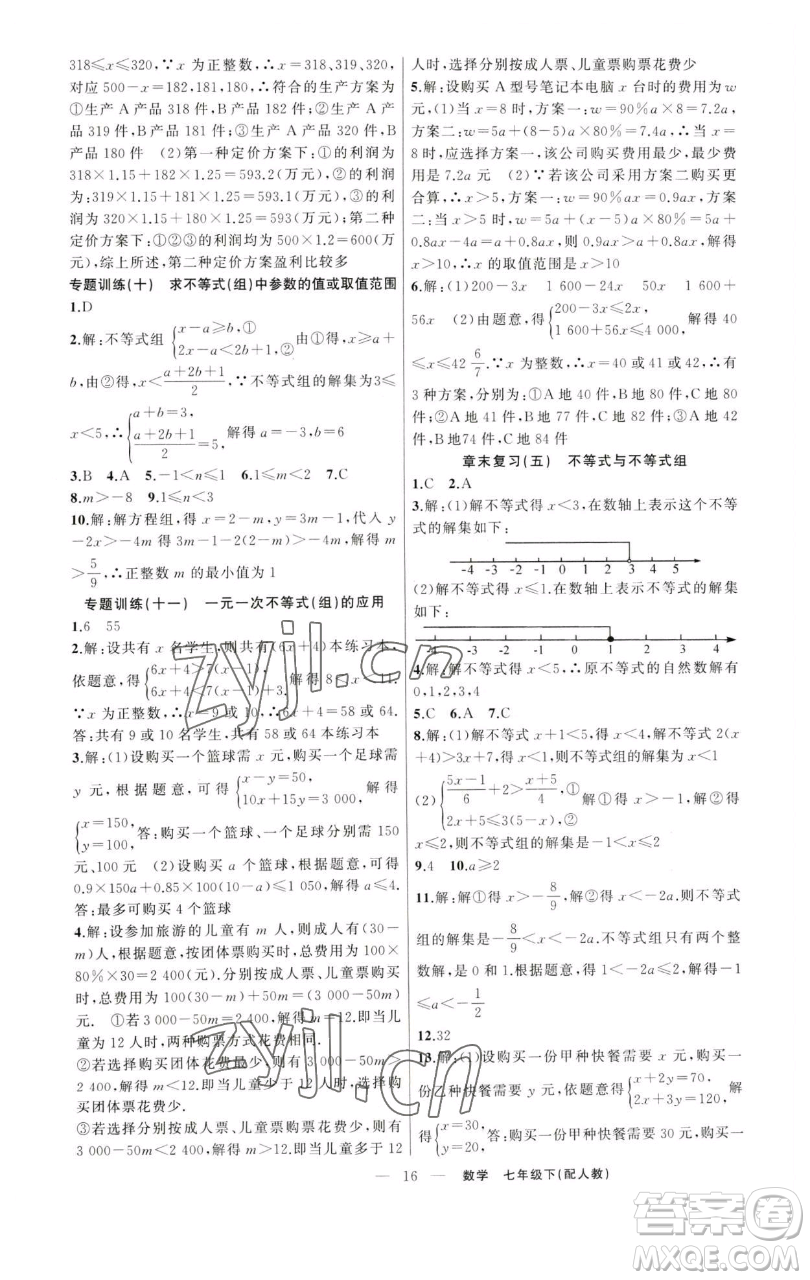 318≤x≤320,∵x 为正整数,∴x=318、319、320,
对应 500-x=182,181,180,∴符合的生产方案为
①生产 A 产品 318 件,B 产品 182 件;②生产 A 产
品 319 件,B 产品 181 件;③生产 A 产品 320 件,B
产品 180 件 (2)第一种定价方案下:①的利润为
318×1.15+182×1.25=593.2(万元),②的利润
为:319×1.15+181×1.25=593.1(万元);③的利
润为 320×1.15+180×1.25=593(万元);第二种
定价方案下:①②③的利润均为 500×1.2=600(万
元),综上所述,第二种定价方案盈利比较多
专题训练(十) 求不等式(组)中参数的值或取值范围
1.D
2.解:不等式组 {x-a≥b,① 2x-a<2b+1,② 由①得,x≥a+
b,由②得,x<(a+2b+1)/2,∵不等式组的解集为3≤
x<5,∴{a+b=3, (a+2b+1)/2=5, 解得 a=-3,b=6
3.B 4.A 5.-1<n≤1 6.1≤m<4 7.C
8.m>-8 9.1≤n<3
10.解:解方程组,得 x=2-m,y=3m-1,代入 y
-2x>-4m 得 3m-1-2(2-m)>-4m,解得 m
>5/9,∴正整数 m 的最小值为 1
专题训练(十一) 一元一次不等式(组)的应用
1.6 55
2.解:设共有 x 名学生,则共有(6x+4)本练习本,
依题意,得{6x+4>7(x-1), 6x+4<7(x-1)+3, 解得 8<x<11.
∵x 为正整数,∴x=9 或 10,∴6x+4=58 或 64.
答:共有 9 或 10 名学生,共有 58 或 64 本练习本
3.解:(1)设购买一个篮球需 x 元,购买一个足球需
y 元,根据题意,可得{x-y=50, 10x+15y=3 000, 解得
{x=150, y=100, 答:购买一个篮球、一个足球分别需 150
元、100 元 (2)设购买 a 个篮球,根据题意,可得
0.9×150a+0.85×100(10-a)≤1 050,解得 a≤4.
答:最多可购买 4 个篮球
4.解:设参加旅游的儿童有 m 人,则成人有(30-
m)人,根据题意,得按团体票购买时,总费用为 100×
80%×30=2 400(元).分别按成人票、儿童票购买
时,总费用为 100(30-m)+50m=(3 000-50m)
元. ①若 3 000-50m=2 400.解得 m=12.即当儿
童为 12 人时,两种购票方式花费相同.
②若选择购买团体花费最少,则有 3 000-50m>
2 400.解得 m<12.即当儿童少于 12 人时,选择购
买团体票花费少.
③若选择分别按成人票、儿童票购票花费少,则有
3 000-50m<2 400.解得 m>12.即当儿童多于 12
人时,选择分别按成人票、儿童票购票花费少
5.解:设购买 A 型号笔记本电脑 x 台时的费用为 w
元,(1)当 x=8 时,方案一:w=90%a×8=7.2a,
方案二:w=5a+(8-5)a×80%=7.4a,∴当 x=
8 时,应选择方案一,该公司购买费用最少,最少费
用是 7.2a 元 (2)∵若该公司采用方案二购买更
合算,∴x>5,方案一:w=90%ax=0.9ax,方案
二:当 x>5 时,w=5a+(x-5)a×80%=5a+
0.8ax-4a=a+0.8ax,则 0.9ax>a+0.8ax,解得
x>10,∴x 的取值范围是 x>10
6.解:(1)200-3x 1 600-24x 50x 1 600+
56x (2)由题意,得{200-3x>2x, 1 600+56x≤4 000, 解得 40
≤x≤42 6/7.∵x 为整数,∴x=40 或 41 或 42,∴有
3 种方案,分别为:①A 地 40 件,B 地 80 件,C 地 80
件;②A 地 41 件,B 地 77 件,C 地 82 件;③A 地 42
件,B 地 74 件,C 地 84 件
章末复习(五) 不等式与不等式组
1.C 2.A
3.解:(1)解不等式得 x<3,在数轴上表示这个不等
式的解集如下:
-4 -3 -2 -1 0 1 2 3 4 5
(2)解不等式得 x≤1.在数轴上表示不等式的解集
如下:
-4 -3 -2 -1 0 1 2 3 4
4.解:解不等式得 x<5,∴原不等式的自然数解有
0,1,2,3,4
5.C 6.A 7.C
8.解:(1)解不等式 x+1<5,得 x<4,解不等式 2(x
+4)>3x+7,得 x<1,则不等式组的解集为 x<1
(2){(5x-1)/6+2>(x+5)/4,① 2x+5≤3(5-x),② 解①得 x>-1,解②得
x≤2,则不等式组的解集是-1<x≤2
9.4 10.a≥2
11.解:解①得 x>-8/9,解②得 x<-2a,不等式
组的解集是-8/9<x<-2a.不等式组只有两个整
数解,是 0 和 1.根据题意,得 1<-2a≤2.解得-1
≤a<-1/2
12.32
13.解:(1)设购买一份甲种快餐需要 x 元,购买一
份乙种快餐需要 y 元,依题意,得{x+2y=70, 2x+3y=120, 解
得{x=30, y=20. 答:购买一份甲种快餐需要 30 元,购买
— 16 — 数学 七年级下(配人教)
zyjl.cn
zyjl.cn
答案圈
MXQE.COM